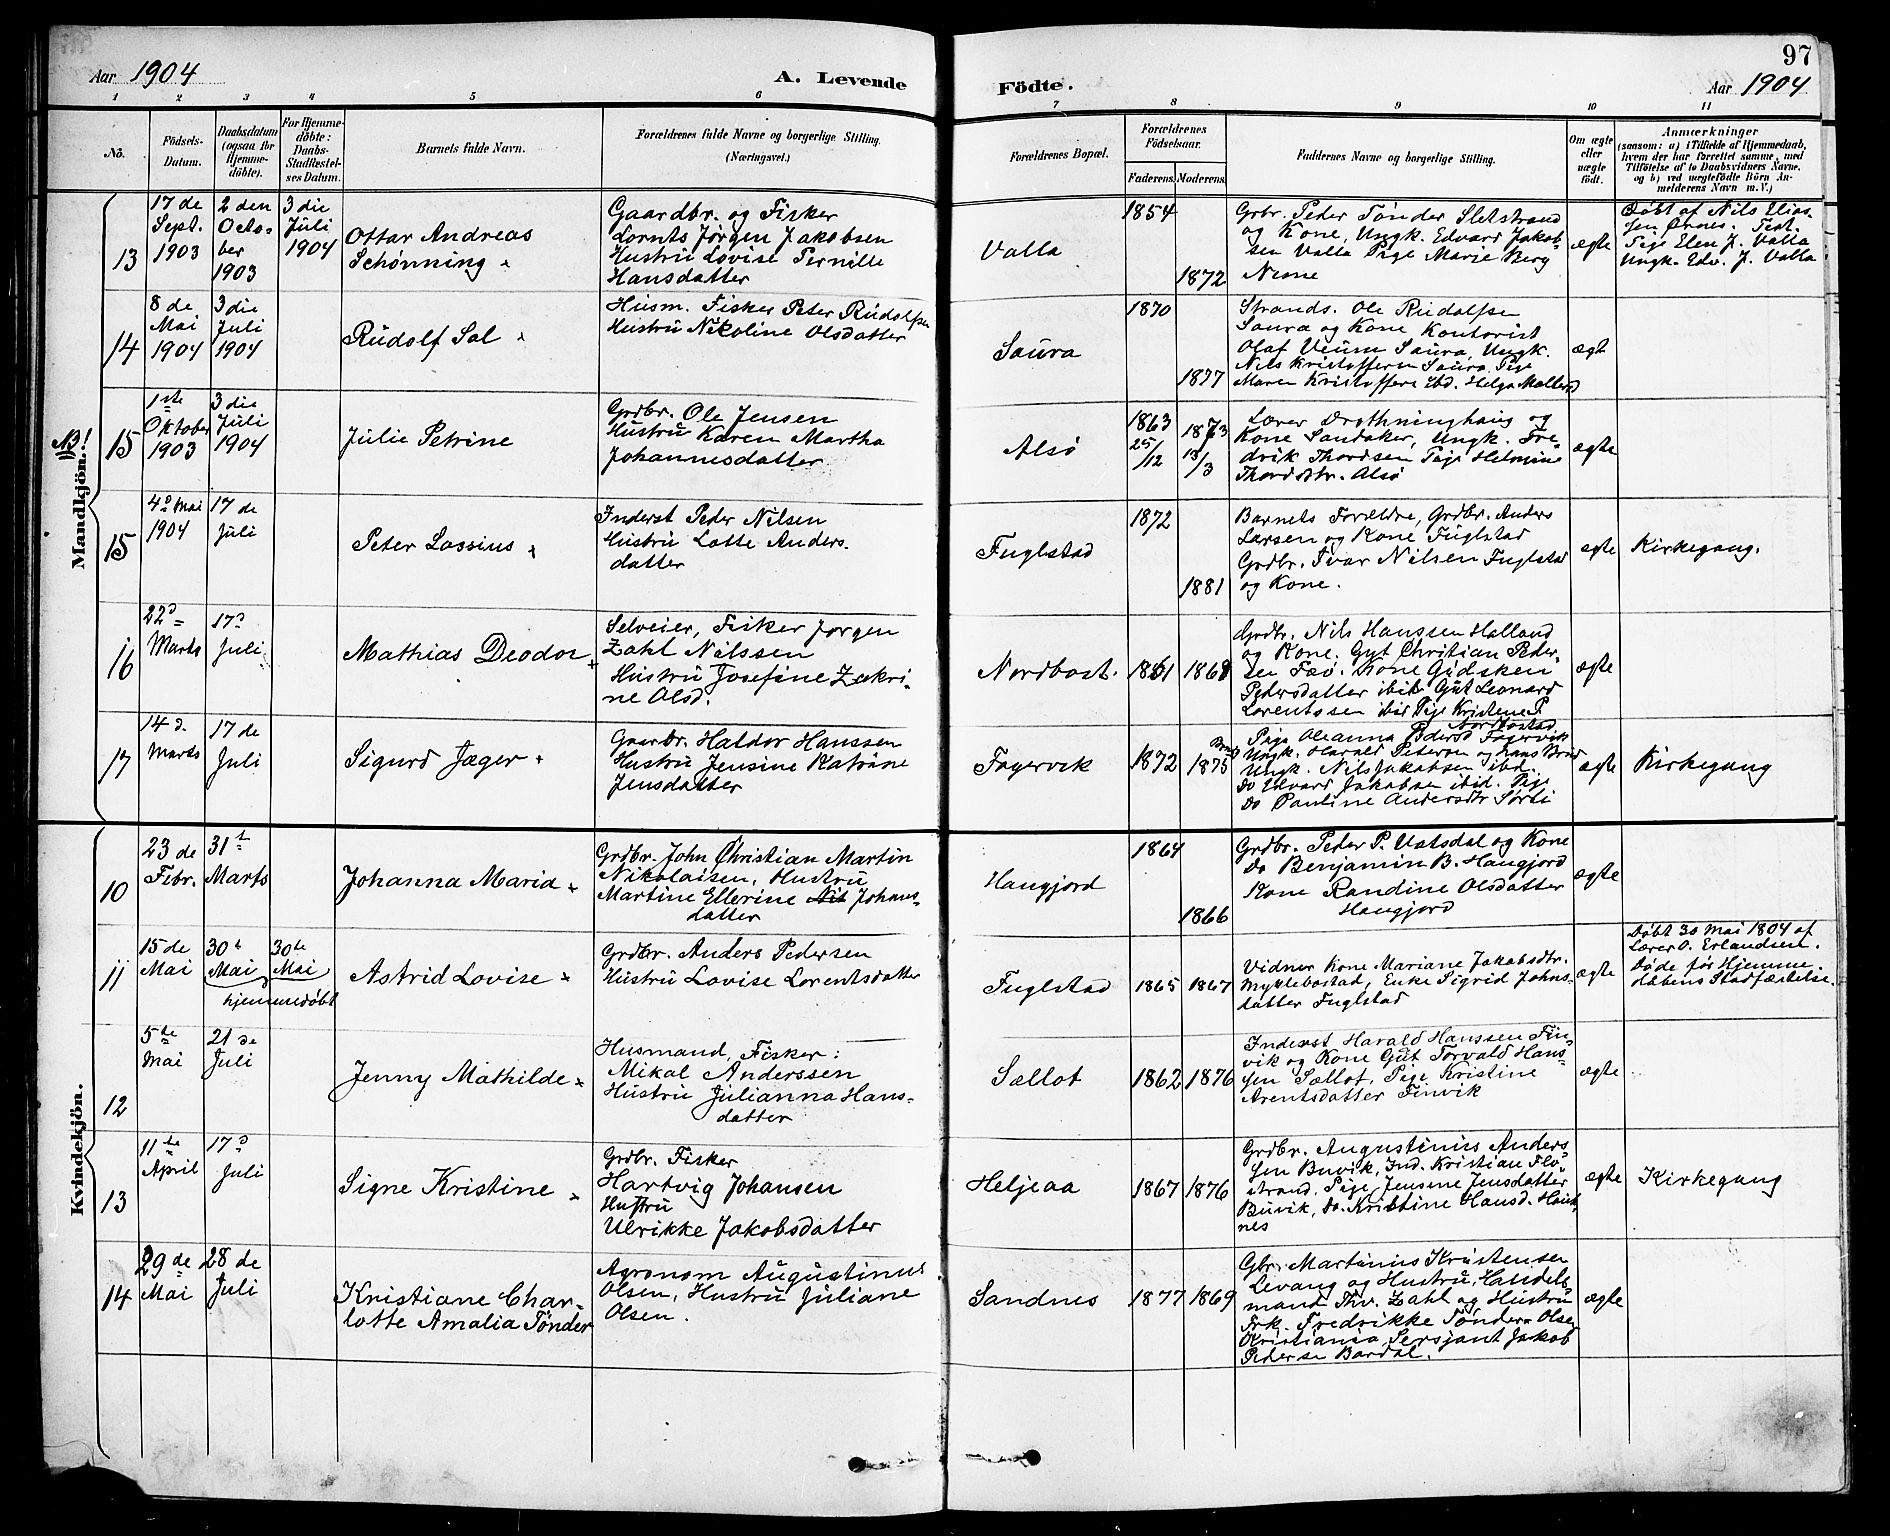 97
Aar 1904
A. Levende
Födte.
Aar 1904
1 2 3 4 5 6 7 8 9 10 11
No.
Födsels-
Datum.
Daabsdatum
(ogsaa for
Hjemme-
døbte).
For Hjemme-
døbte:
Daabs-
Stadfæstel-
ses Datum.
Barnets fulde Navn.
Forældrenes fulde Navne og borgerlige Stilling.
(Næringsvei.)
Forældrenes Bopæl.
Forældrenes
Födselsaar.
Faderens. Moderens.
Faddernes Navne og borgerlige Stilling.
Om ægte
eller
uægte
födt.
Anmærkninger
(saasom: a) i Tilfælde af Hjemmedaab,
hvem der har forrettet samme, med
Tilföielse af to Daabsvidners Navne,
og b) ved uægtefödte Börn An-
melderens Navn m. V.)
Mandkjön.
NB!
13
17 de
Sept.
1903
2 den
Octo-
ber
1903
3 die
Juli
1904
Ottar Andreas
Schønning
Gaardbr. og Fisker
Lornts Jørgen Jakobsen
Hustru Lovise Pernille
Hansdatter
Valla
1854
1872
Grbr. Peder Tønder Sletstrand
og Kone, Ungk. Edvard Jakob-
sen Valla Pige Marie Berg
Nesne
ægte
Døbt af Nils Elias-
sen Ørnes. Test.
Pige Elen J. Valla
Ungk. Edv. J. Valla
14
8 de
Mai
1904
3 die
Juli
1904
Rudolf Sal
Husm. Fisker Peter Rudolfsen
Hustru Nikoline Olsdatter
Saura
1870
1877
Strands. Ole Rudolfsen
Saura og Kone Kontorist
Olaf Veum Saura, Ungk.
Nils Kristoffersn Saura, Pige
Maren Kristoffers Ibd. Helga
ægt
15
1ste
Oktober
1903
3 die
Juli
1904
Julie Petrine
Grdbr. Ole Jensen
Hustru Karen Martha
Johannesdatter
Alsø
1863
25/12
1873
13/3
Lærer Drothninghaug og
Kone Sandaker, Ungk. Fre-
drik Thordsen Pige Helmine
Thordsdtr. Alsø
ægte
15
4d Mai
1904
17 de
Juli
Peter Lassius
Inderst Peder Nilsen
Hustru Lotte Anders-
datter
Fuglstad
1872
1881
Barnets Forældre, Grdbr. Anders
Larsen og Kone Fuglstad
Grdbr. Ivar Nilsen Fuglstad
og Kone.
ægte
Kirkegang.
16
22d
Marts
17d
Juli
Mathias Deodor
Selveier, Fisker Jørgen
Zahl Nilssen
Hustru Josefine Zakri-
ne Olsd.
Nordbost.
1861
1868
Grdbr. Nils Hanssen Halland
og Kone. Gut Christian Peder-
sen Fæø. Kone Gidsken
Pedersdatter ibid Gut Leonard
Lorentssen ibid Pige Kristene P.
Nordbostad
ægte
17
14 d.
Marts
17 de
Juli
Sigurd Jæger
Gaardbr. Haldor Hanssen
Hustru Jensine Katrine
Jensdatter
Fagervik
1872
1875
Pige Oleanna Pedersd Fagervik
Ungk. Harald Peterson og hans Brud
Ungk. Nils Jakobsen ibd.
Do Edvard Jakobsen ibid. Pige
Do Pauline Andersdtr Sørli
ægte
Kirkegang
Kvindekjön.
10
23 de
Febr.
31t
Marts
Johanna Maria
Grdbr. John Christian Martin
Nikolaisen, Hustru
Martine Ellerine Nil Johans-
datter
Haugjord
1864
1866
Grdbr. Peder P. Vatsdal og Kone
Do Benjamin B. Haugjord
Kone Randine Olsdatter
Haugjord
ægte
11
15 de
Mai
30t
Mai
30te
Mai
hjemmedøbt
Astrid Lovise
Grdbr. Anders Pedersen
Hustru Lovise Lorentsdatter
Fuglstad
1865
1867
Vidner Kone Mariane Jakobsdtr.
Myklebostad, Enke Sigrid Johns-
datter Fuglstad
ægte
Døbt 30 Mai 1804 af
Lærer O. Erlandsen.
Døde før Hjemme-
daabens Stadfæstelse.
12
5te
Mai
21 de
Juli
Jenny Mathilde
Husmand, Fisker:
Mikal Anderssen
Hustru Julianna Hans-
datter
Sællot
1862
1876
Inderst Harald Hanssen Fin-
vik og Kone Gut Torvald Hans-
sen Sællot, Pige Kristine
Arentsdatter Finvik
ægte
13
11te
April
17d
Juli
Signe Kristine
Grdbr. Fisker
Hartvig Johansen
Hustru
Ulrikke Jakobsdatter
Heljeaa
1867
1876
Grdbr. Augustinus Anders-
sen Buvik, Ind. Kristian Flo-
strand. Pige Jensine Jensdatter
Buvik, Do. Kristine Hansd.
nes
ægte
Kirkegang
14
29 de
Mai
28 de
Juli
Kristiane Char-
lotte Amalia Tønder
Agronom Augustinus
Olsen, Hustru Juliane
Olsen.
Sandnes
1877
1869
Gbr. Martinus Kristensen
Levang og Hustru, Handels-
mand Thv. Zahl og Hustru
Frk. Fredrikke Tønder Olsen
Kristiania, Sersjant Jakob
Pedersen Bardal.
ægte